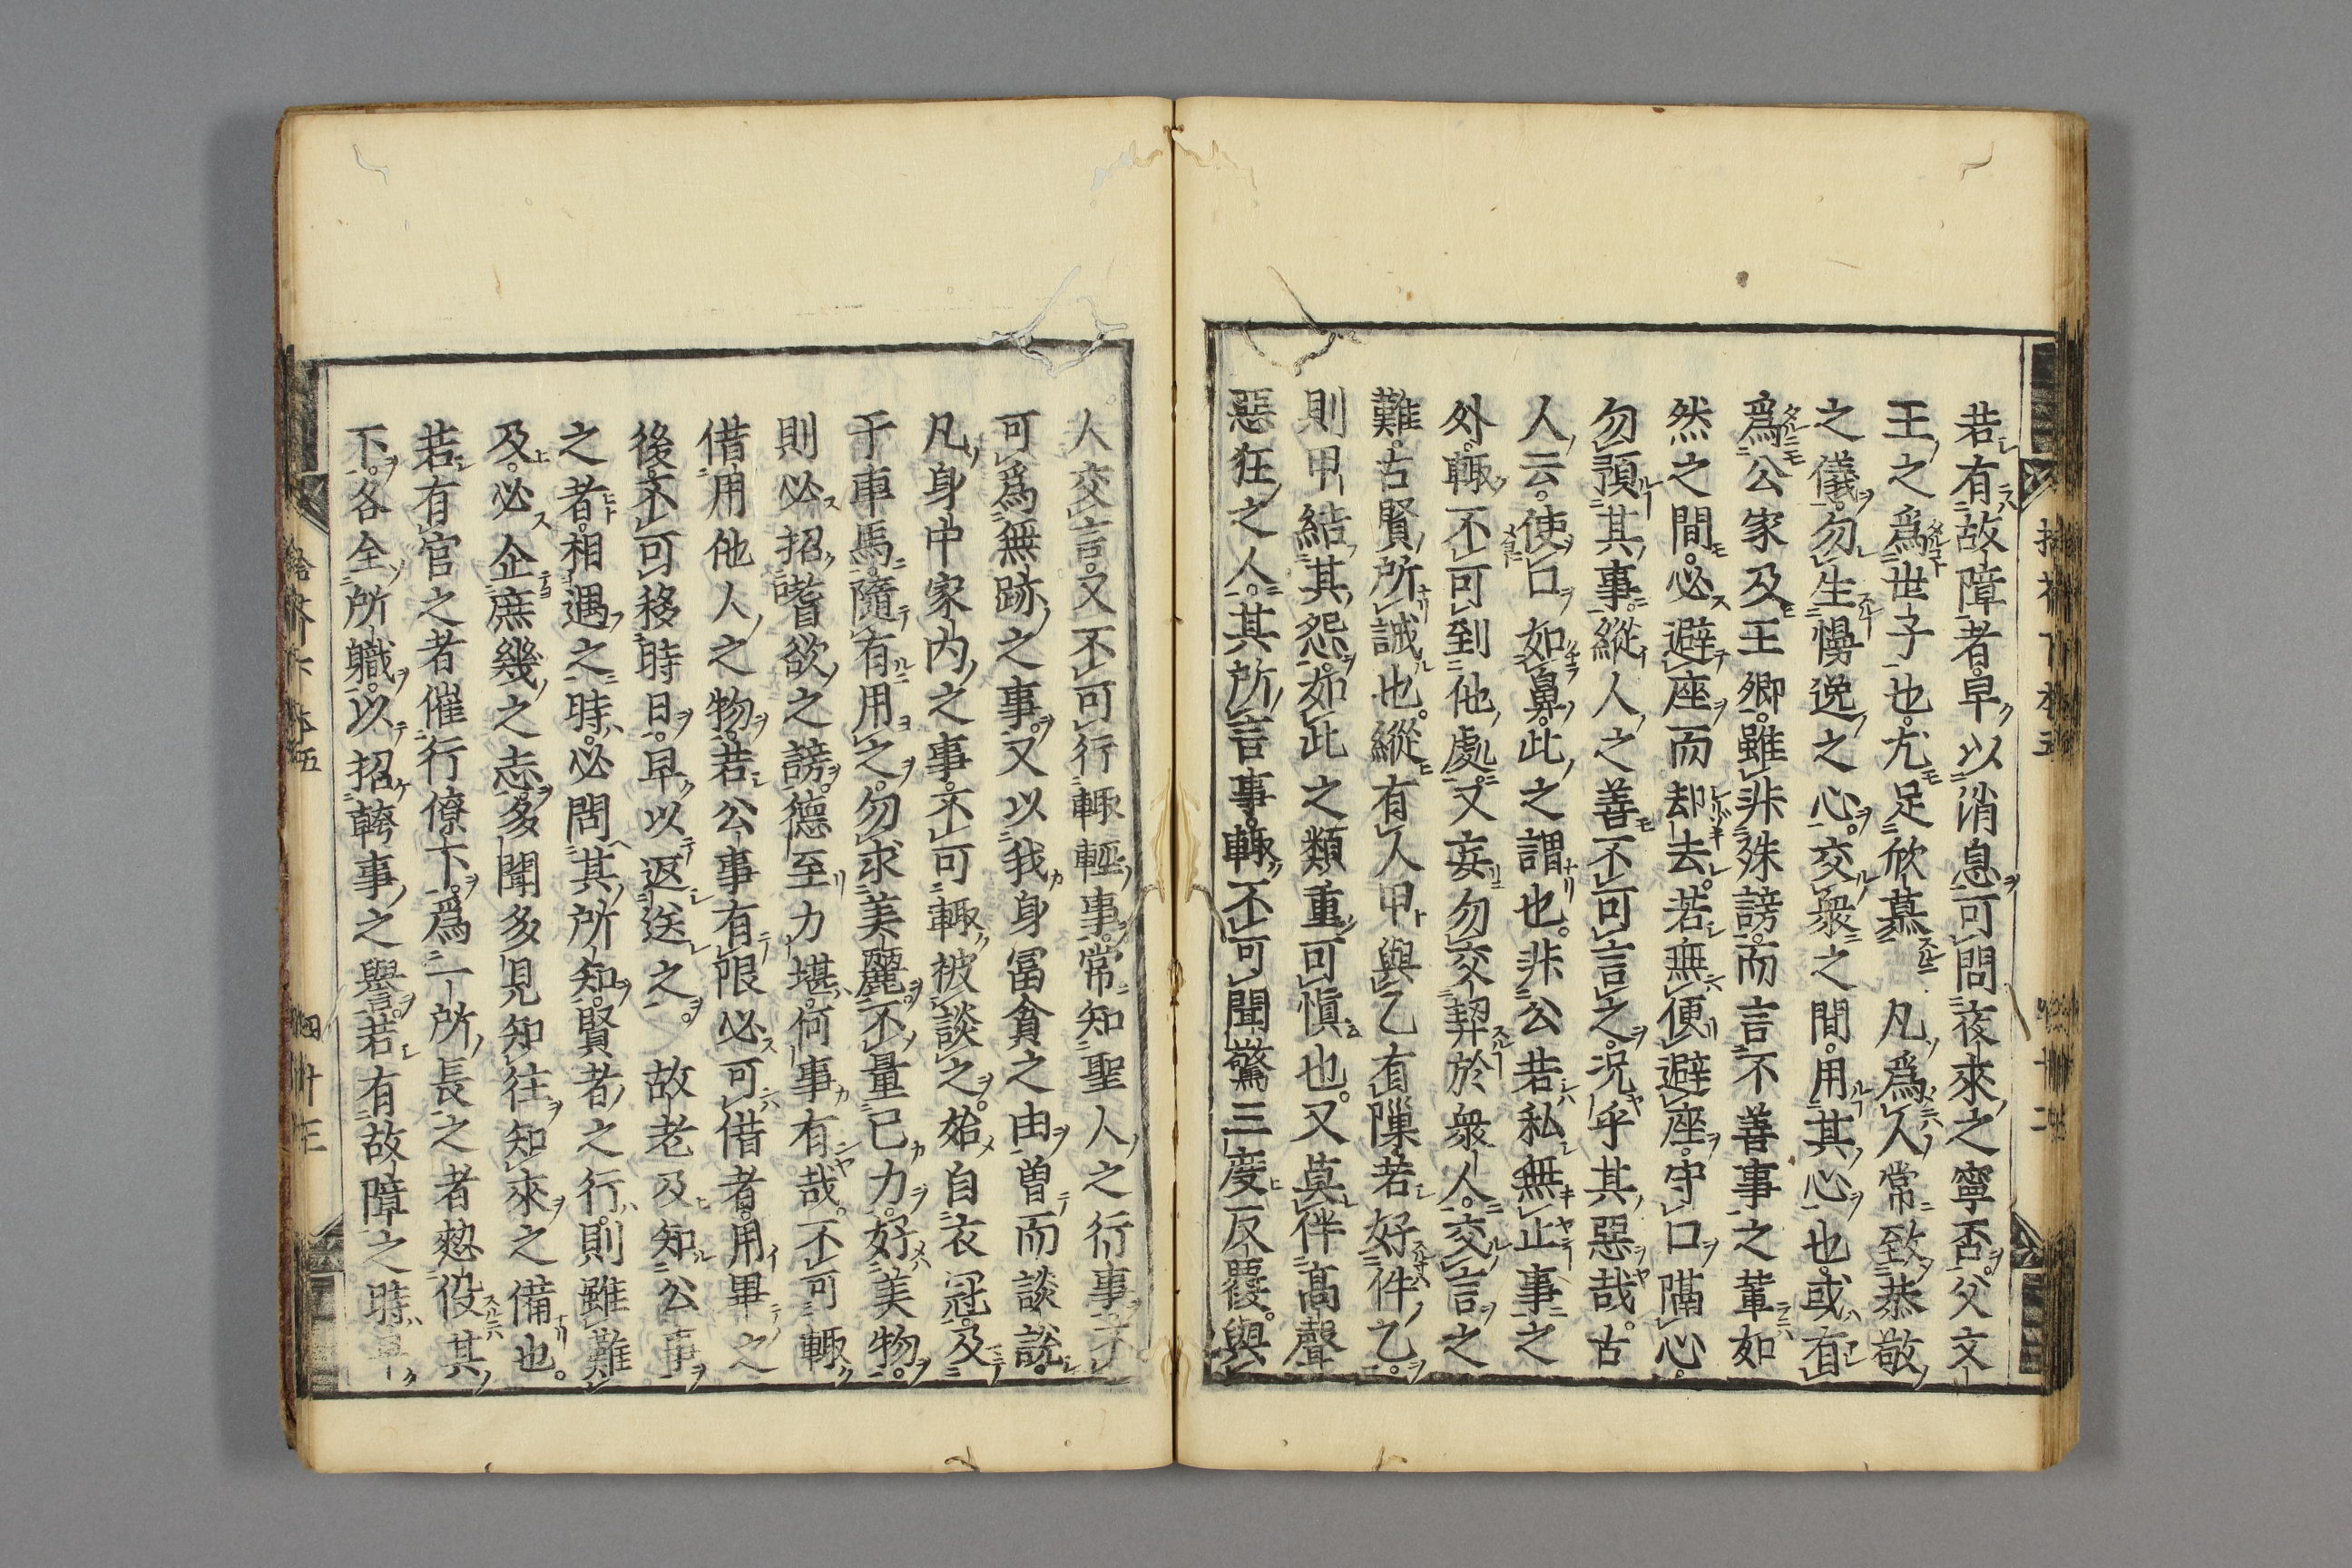 若有故障者。早以消息可問夜來之寧否。父文
王之爲世子也。尤足欣慕 凡爲人常致恭敬
之儀。勿生慢逸之心。交衆之間。用其心也。或有
爲公家及王卿。雖非殊謗。而言不善事之輩如
然之間。必避座而却去。若無便避座。守口隔心。
勿預其事。縱人之善不可言之。况乎其惡哉。古
人云。使口如鼻。此之謂也。非公若私無止事之
外。輙不可到他處。又妄勿交契於衆人。交言之
難。古賢所誡也。縱有人甲與乙有隟。若好件乙。
則甲結其怨。如此之類重可愼也。又莫伴高聲
惡狂之人。其所言事。輙不可聞驚。三度反覆。與
人交言。又不可行輙輕事。常知聖人之行事。不
可爲無跡之事。又以我身冨貧之由。曽而談説。
凡身中家内之事。不可輙被談之。始自衣冠。及
于車馬。隨有用之。勿求美麗。不量已力。好美物。
則必招嗜欲之謗。德至力堪。何事有哉。不可輙
借用他人之物。若公事有限必可借者。用畢之
後。不可移時日。早以返送之。 故老及知公事
之者。相遇之時。必問其所知。賢者之行。則雖難
及。必企庶幾之志。多聞多見知往知來之備也。
若有官之者催行僚下。爲一所長之者㤨役其
下。各全所職。以招䠸事之譽。若有故障之時早